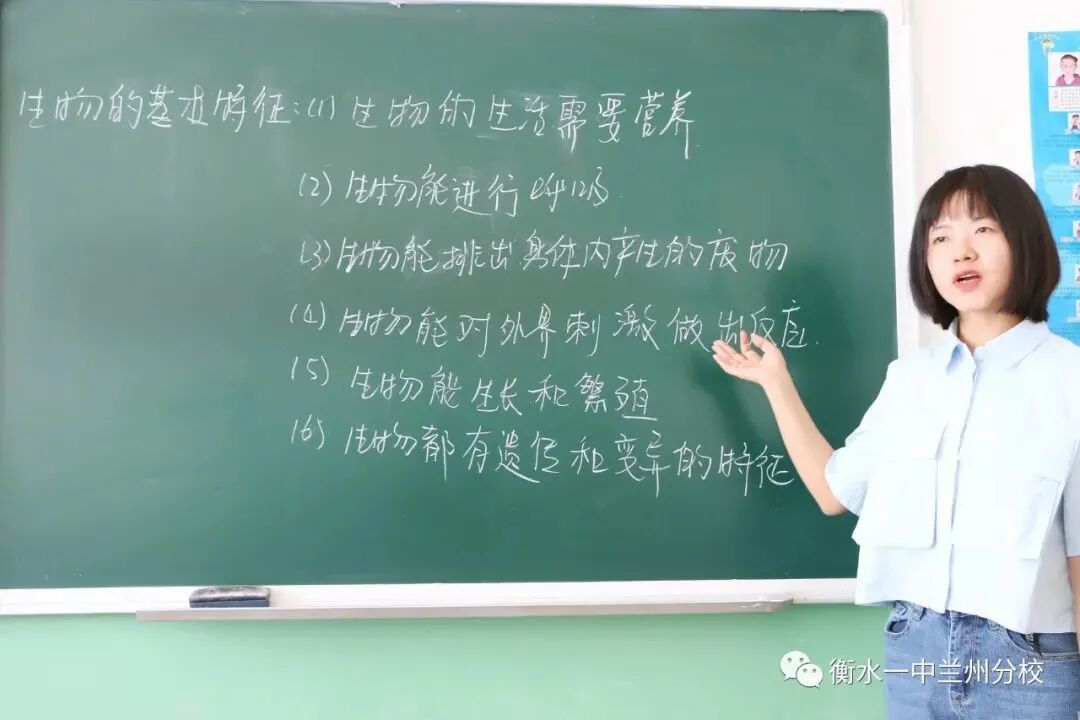 生物的基本特征:(1) 生物的生活需要营养.
(2) 生物能进行呼吸.
(3) 生物能排出身体内产生的废物
(4) 生物能对外界刺激做出反应.
(5) 生物能生长和繁殖
(6) 生物都有遗传和变异的特征
衡水一中兰州分校